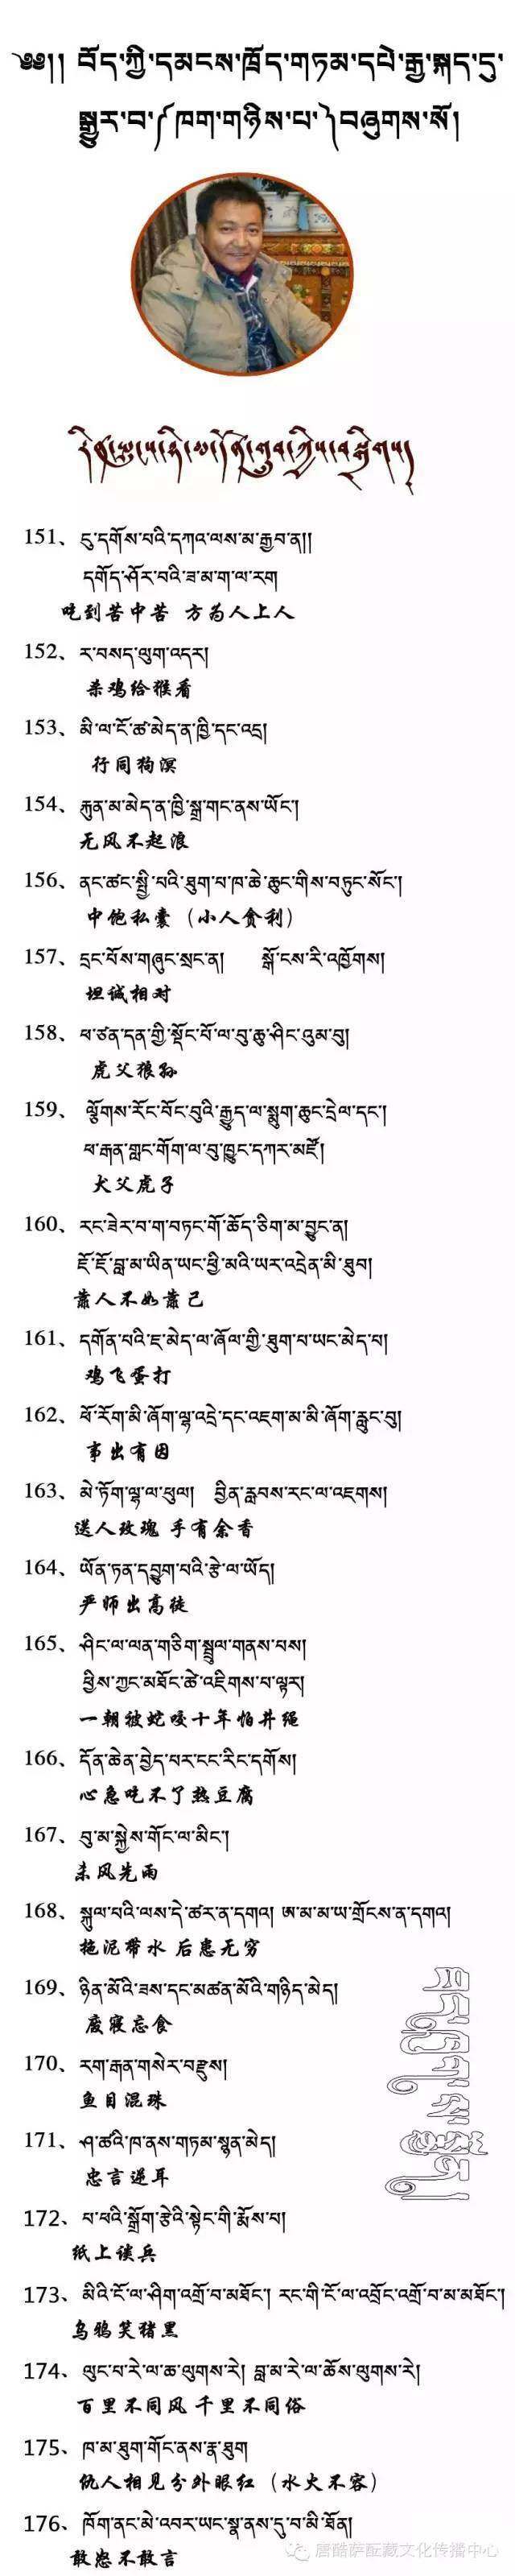 ༄༅།། བོད་ཀྱི་དམངས་ཁྲོད་གཏམ་དཔེ་རྒྱ་སྐད་དུ་
སྒྱུར་བ་༼ཁག་གཉིས་པ་༽བཞུགས་སོ།
151、ངུ་དགོས་པའི་དཀའ་ལས་མ་རྒྱབ་ན།།
དགོད་ཤོར་བའི་ཟ་མ་ག་ལ་རག
吃到苦中苦 方为人上人
152、ར་བསད་ལུག་འདར།
杀鸡给猴看
153、མི་ལ་ངོ་ཚ་མེད་ན་ཁྱི་དང་འདྲ།
行同狗溟
154、རྐུན་མ་མེད་ན་ཁྱི་སྒྲ་གང་ནས་ཡོང་།
无风不起浪
156、ནང་ཚང་སྤྱི་པའི་ཐུག་པ་ཁ་ཆེ་ཆུང་གིས་བཏུང་སོང་།
中饱私囊（小人贪利）
157、དྲང་པོས་གཞུང་སྲང་ན། སྒོ་ངས་རི་འཁྱོགས།
坦诚相对
158、ཕ་ཙན་དན་གྱི་སྡོང་པོ་ལ་བུ་ཆུ་ཤིང་འུམ་བུ།
虎父狼孙
159、ལྕོགས་རོང་བོང་བུའི་རྒྱུད་ལ་སྨུག་ཆུང་དྲེལ་དང་།
ཕ་རྒན་གླང་གོག་ལ་བུ་ཁྱུང་དཀར་མཛོ།
犬父虎子
160、རང་ཟེར་བ་ག་བཏང་གོ་ཆོད་ཅིག་མ་བྱུང་ན།
ཇོ་ཇོ་བླ་མ་ཡིན་ཡང་ཕྱི་མའི་ཡར་འདྲེན་མི་ཐུབ།
靠人不如靠己
161、དགོན་པའི་ཇ་མེད་ལ་ཞོལ་གྱི་ཐུག་པ་ཡང་མེད་པ།
鸡飞蛋打
162、ཕོ་རོག་མི་ཞོག་ལྷ་འདྲེ་དང་འཇག་མ་མི་ཞོག་རླུང་བུ།
事出有因
163、མེ་ཏོག་ལྷ་ལ་ཕུལ། བྱིན་རླབས་རང་ལ་འཇགས།
送人玫瑰 手有余香
164、ཡོན་ཏན་དབྱུག་པའི་རྩེ་ལ་ཡོད།
严师出高徒
165、ཤིང་ལ་ལན་གཅིག་སྦྲུལ་གནས་པས།
ཕྱིས་ཀྱང་མཐོང་ཚེ་འཇིགས་པ་ལྟར།
一朝被蛇咬十年怕井绳
166、དོན་ཆེན་བྱེད་པར་ངང་རིང་དགོས།
心急吃不了热豆腐
167、བུ་མ་སྐྱེས་གོང་ལ་མིང་།
未风先雨
168、སྐུལ་པའི་ལས་དེ་ཚར་ན་དགའ། ཨ་མ་མ་ཡ་གྲོངས་ན་དགའ།
拖泥带水 后患无穷
169、ཉིན་མོའི་ཟས་དང་མཚན་མོའི་གཉིད་མེད།
废寝忘食
170、རག་རྒན་གསེར་བརྫུས།
鱼目混珠
171、ཤ་ཚའི་ཁ་ནས་གཏམ་སྙན་མེད།
忠言逆耳
172、པ་ཕའི་སྒྲོག་རྩེའི་སྟེང་གི་རྨོས་པ།
纸上谈兵
173、མིའི་ངོ་ལ་ཤིག་འགྲོ་བ་མཐོང་། རང་གི་ངོ་ལ་འབྲོང་འགྲོ་བ་མ་མཐོང་།
乌鸦笑猪黑
174、ལུང་པ་རེ་ལ་ཆ་ལུགས་རེ། བླ་མ་རེ་ལ་ཆོས་ལུགས་རེ།
百里不同风 千里不同俗
175、ཁ་མ་ཐུག་གོང་ནས་རྣ་ཐུག
仇人相见分外眼红（水火不容）
176、ཁོག་ནང་མེ་འབར་ཡང་སྣ་ནས་དུ་བ་མི་ཐོན།
敢怒不敢言
唐酷萨酝藏文化传播中心